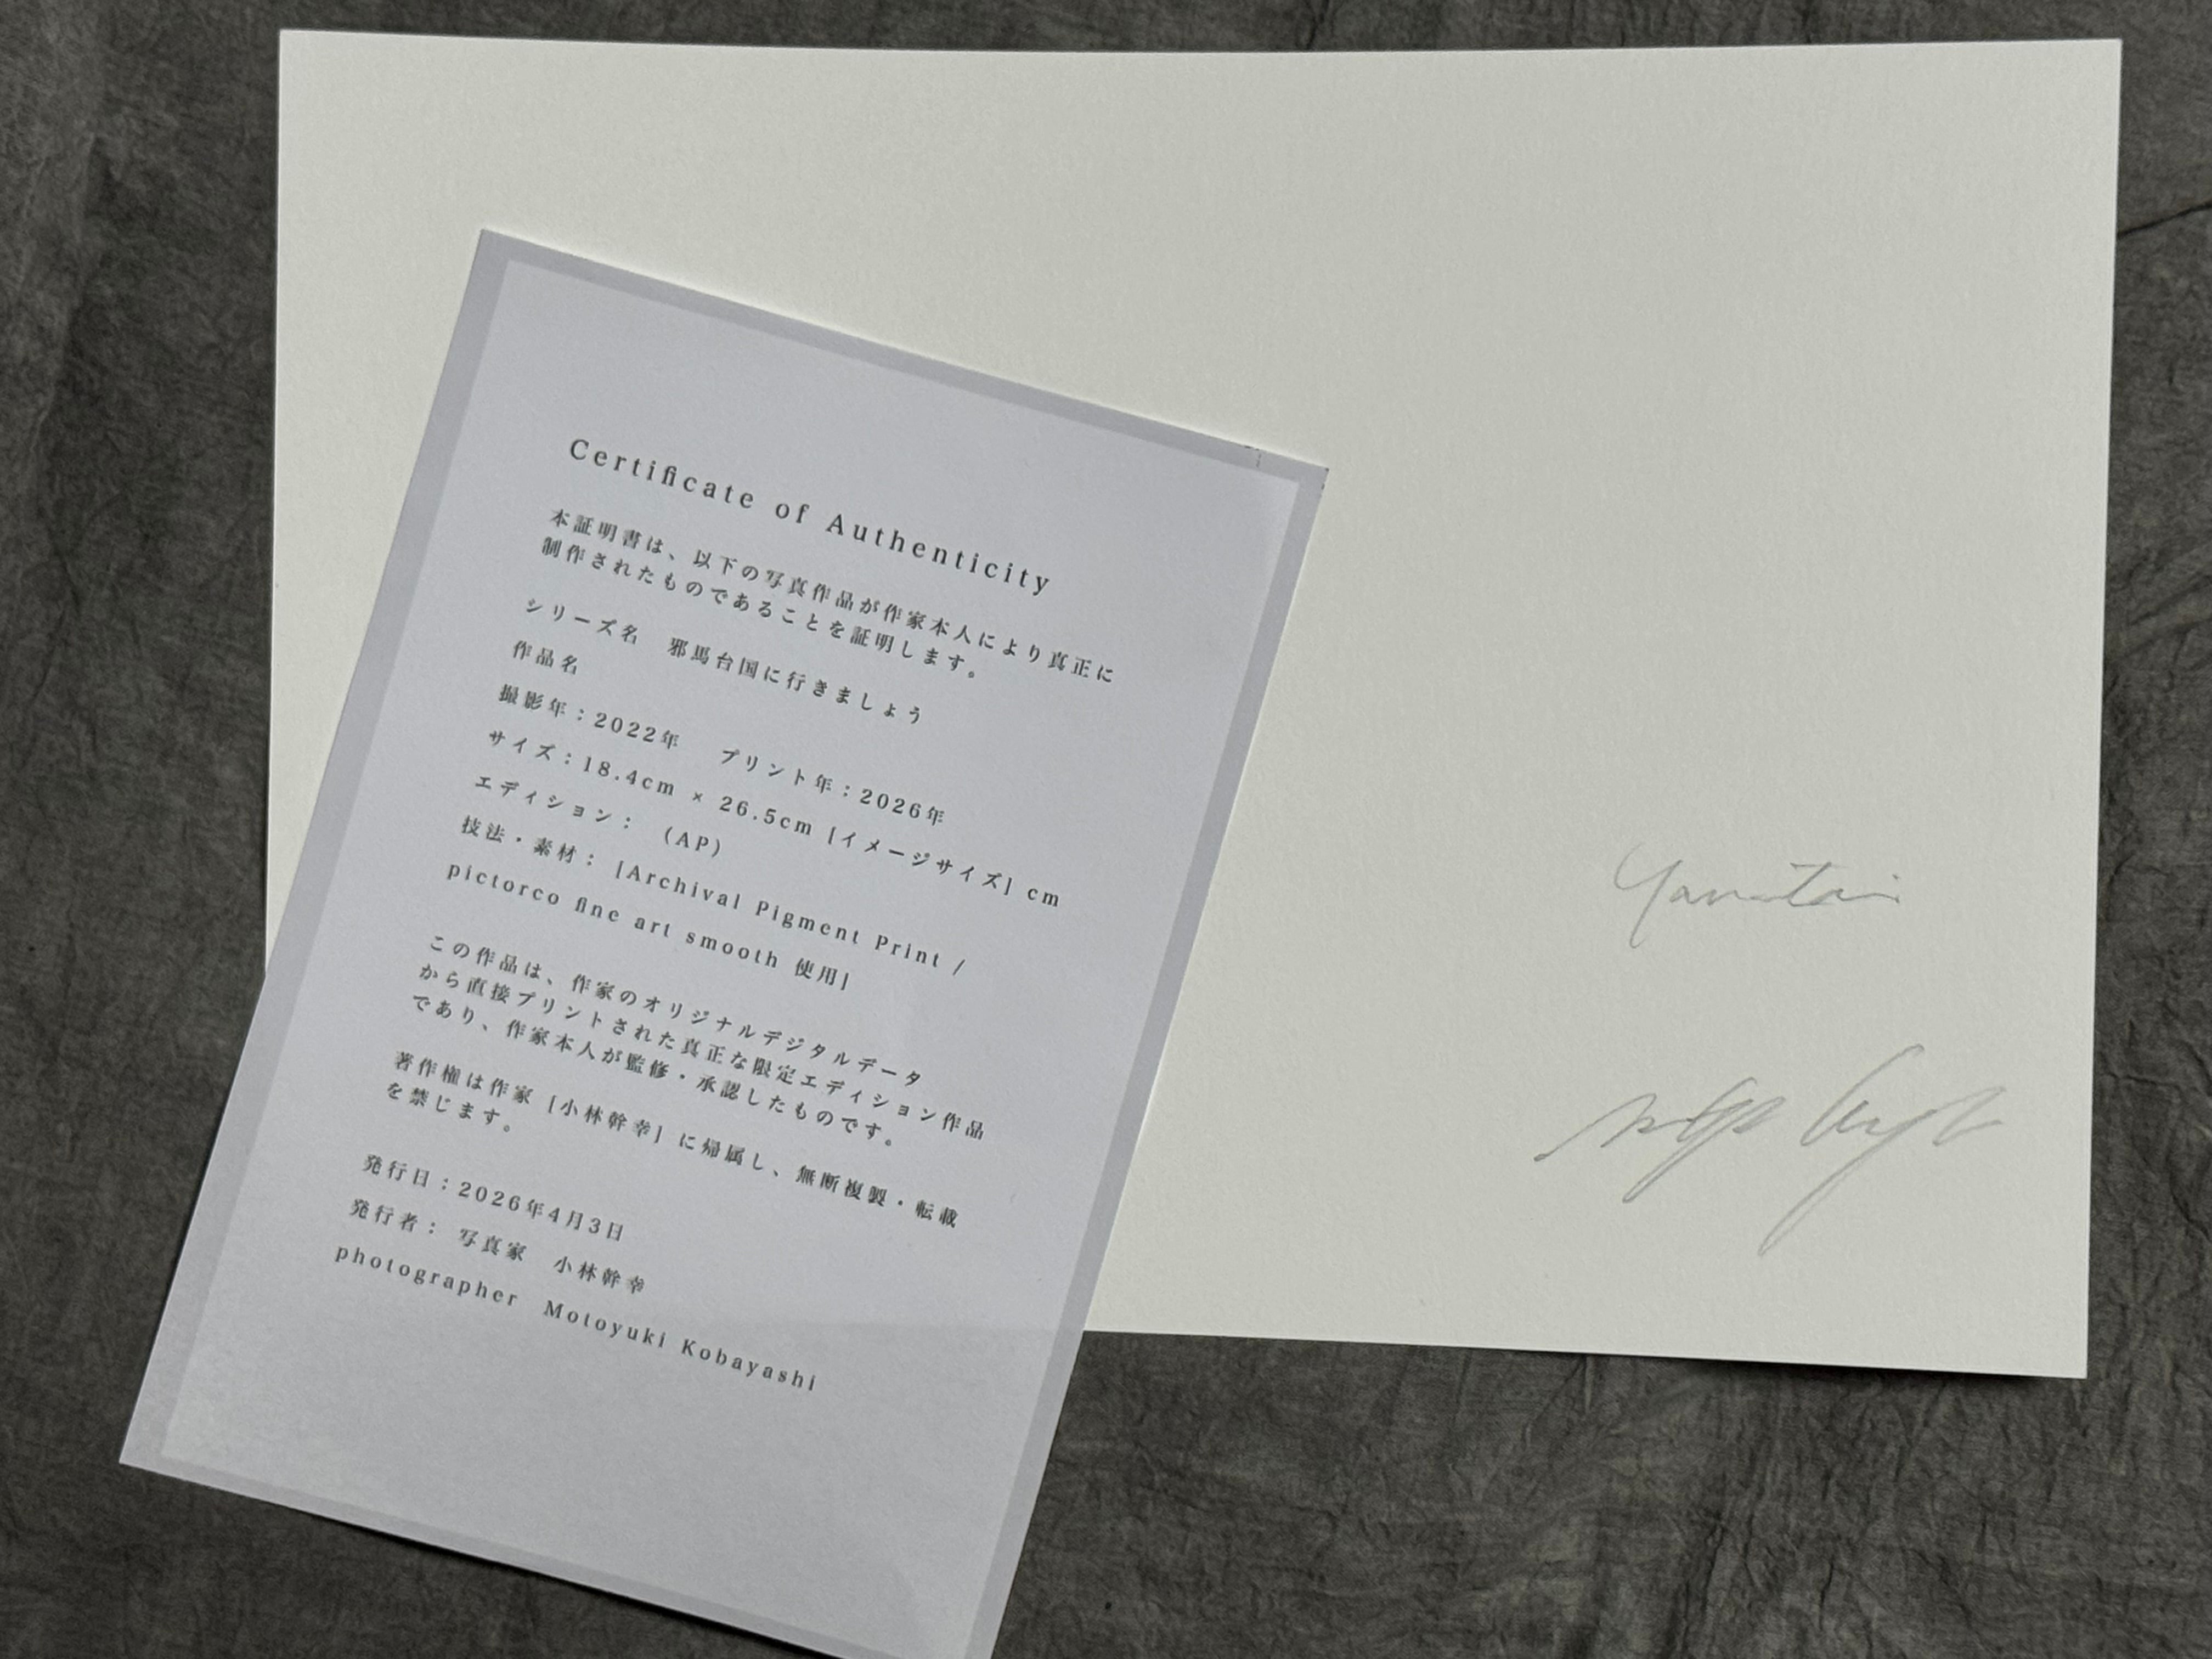 Certificate of Authenticity
本証明書は、以下の写真作品が作家本人により真正に
制作されたものであることを証明します。
シリーズ名　邪馬台国に行きましょう
作品名
撮影年：2022年　プリント年：2026年
サイズ：18.4cm × 26.5cm [イメージサイズ] cm
エディション：　（AP）
技法・素材：［Archival Pigment Print /
pictorco fine art smooth 使用］
この作品は、作家のオリジナルデジタルデータ
から直接プリントされた真正な限定エディション作品
であり、作家本人が監修・承認したものです。
著作権は作家［小林幹幸］に帰属し、無断複製・転載
を禁じます。
発行日：2026年4月3日
発行者：　写真家　小林幹幸
photographer　Motoyuki Kobayashi